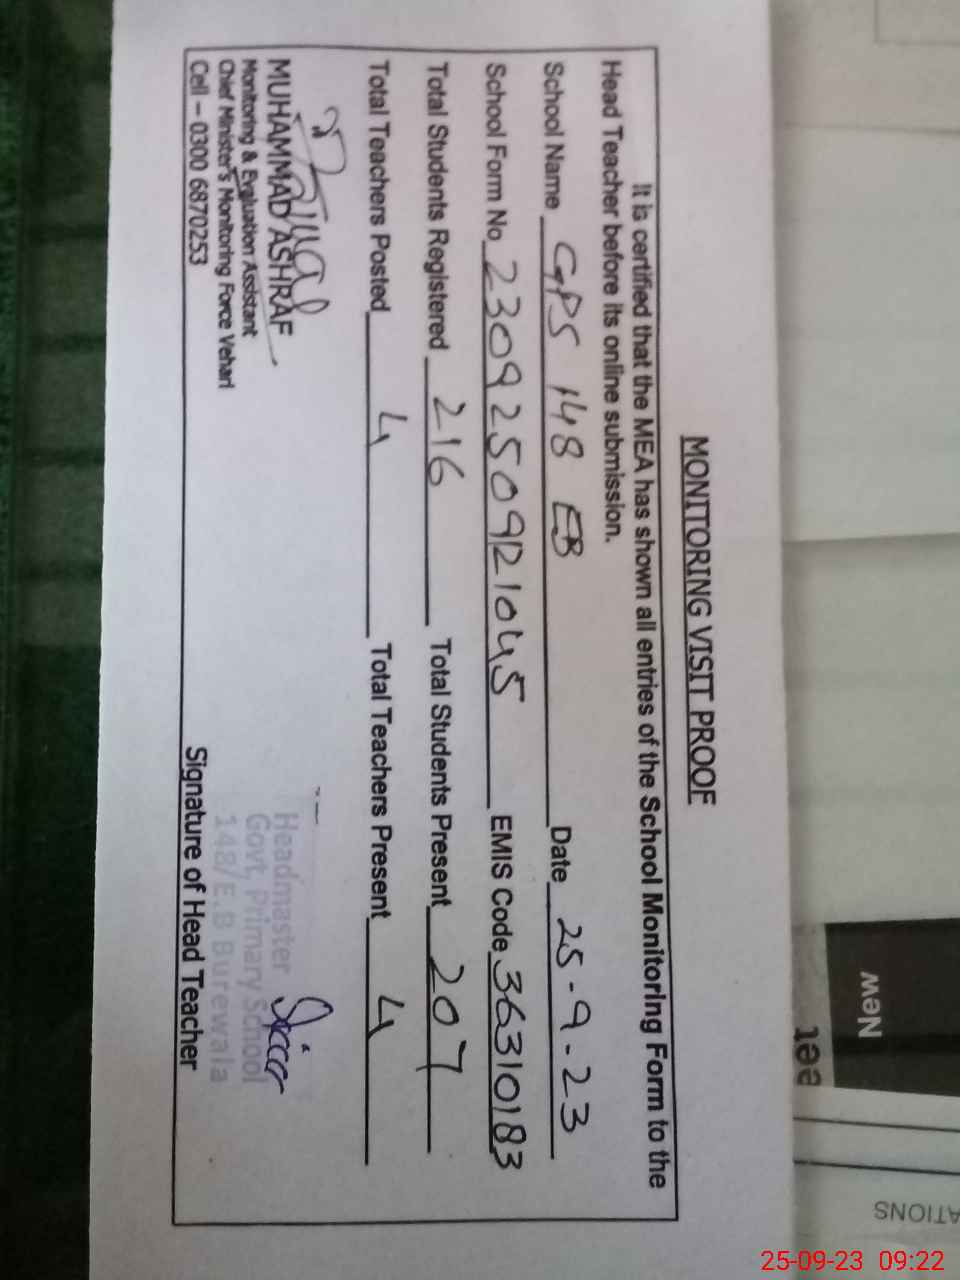 MONITORING VISIT PROOF
It is certified that the MEA has shown all entries of the School Monitoring Form to the
Head Teacher before its online submission.
School Name GPS 148 EB Date 25-9-23
School Form No 23092509121045 EMIS Code 36310183
Total Students Registered 216 Total Students Present 207
Total Teachers Posted 4 Total Teachers Present 4
MUHAMMAD ASHRAF
Monitoring & Evaluation Assistant
Chief Minister's Monitoring Force Vehari
Cell – 0300 6870253
Headmaster
Govt. Primary School
148/E.B Burewala
Signature of Head Teacher
New
ATIONS
25-09-23 09:22